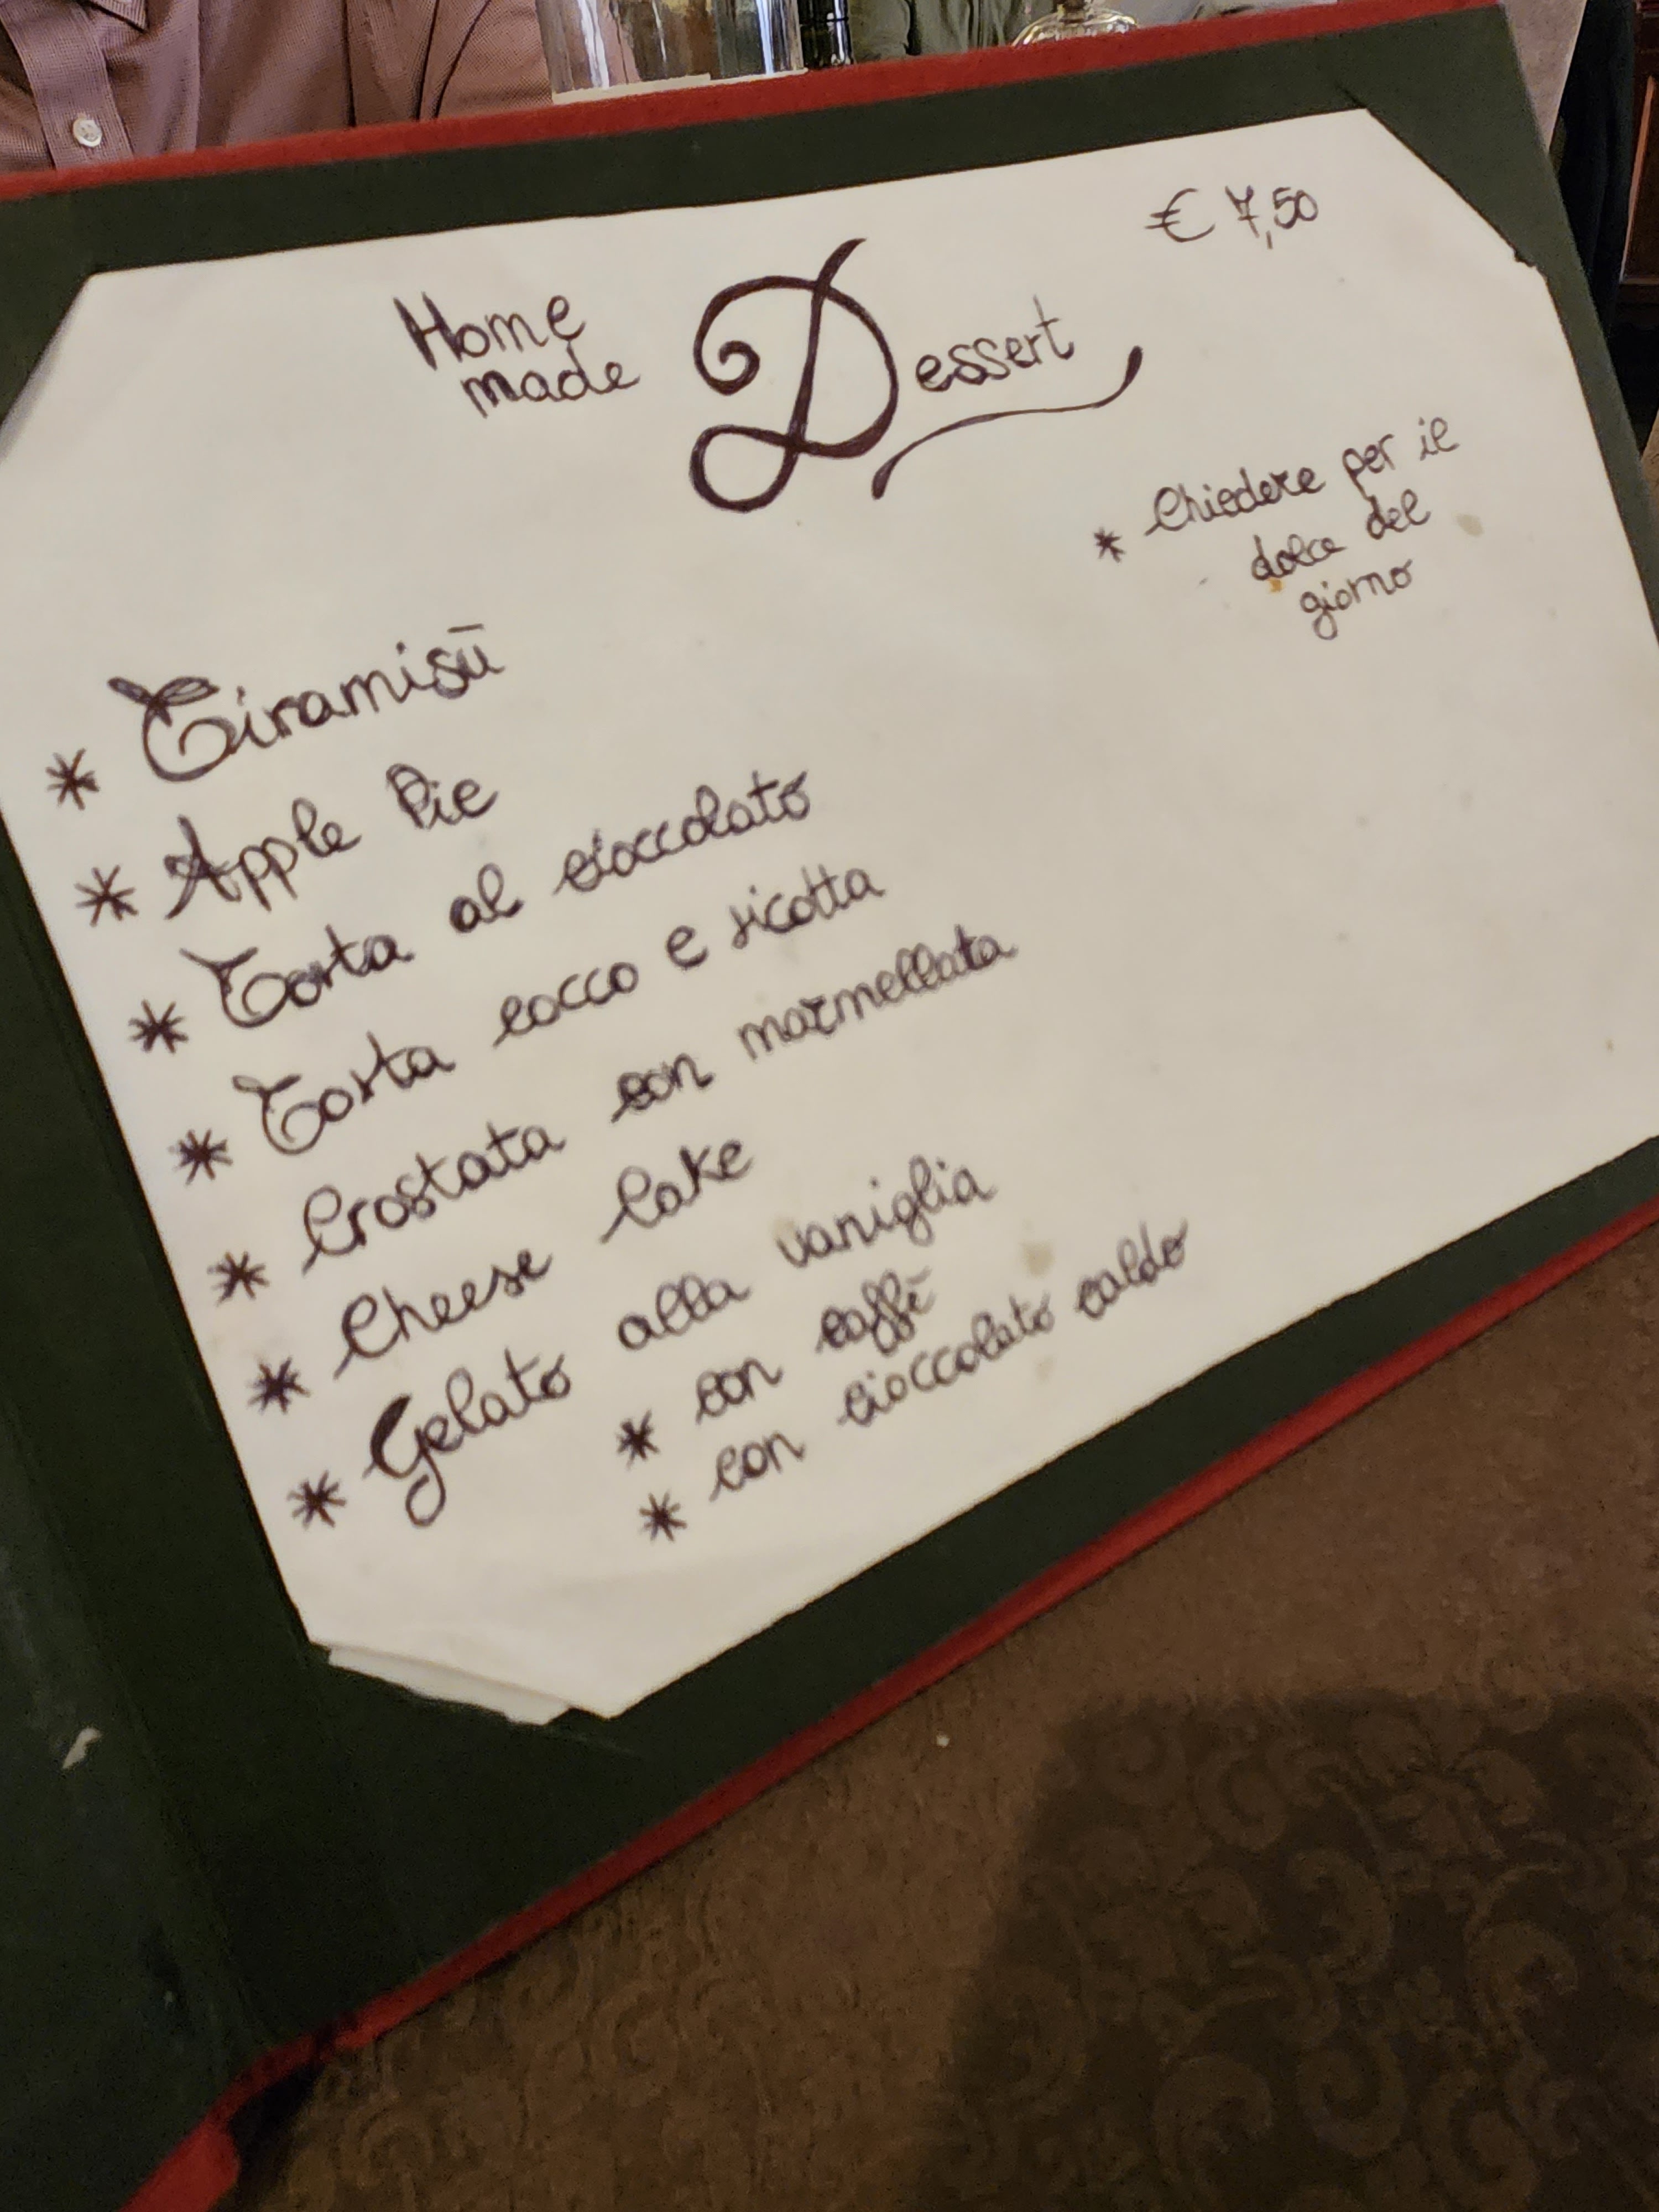 € 7,50
Home
made Dessert
* Chiedere per il
dolce del
giorno
* Tiramisū
* Apple Pie
* Torta al cioccolato
* Torta cocco e ricotta
* Crostata con marmellata
* Cheese Cake
* Gelato alla vaniglia
* con caffē
* con cioccolato caldo